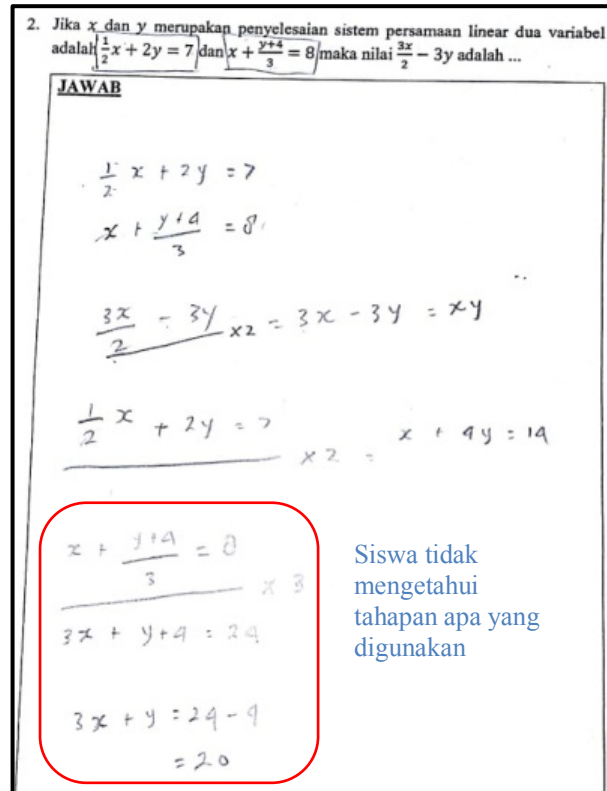 2. Jika x dan y merupakan penyelesaian sistem persamaan linear dua variabel
adalah ½x + 2y = 7 dan x + (y+4)/3 = 8 maka nilai 3x/2 − 3y adalah ...
JAWAB
1/2 x + 2y = 7
x + (y+4)/3 = 8
3x/2 - 3y ×2 = 3x - 3y = xy
1/2 x + 2y = 7 ×2 = x + 4y = 14
x + (y+4)/3 = 8 × 3
3x + y+4 = 24
3x + y = 24 - 4
= 20
Siswa tidak
mengetahui
tahapan apa yang
digunakan